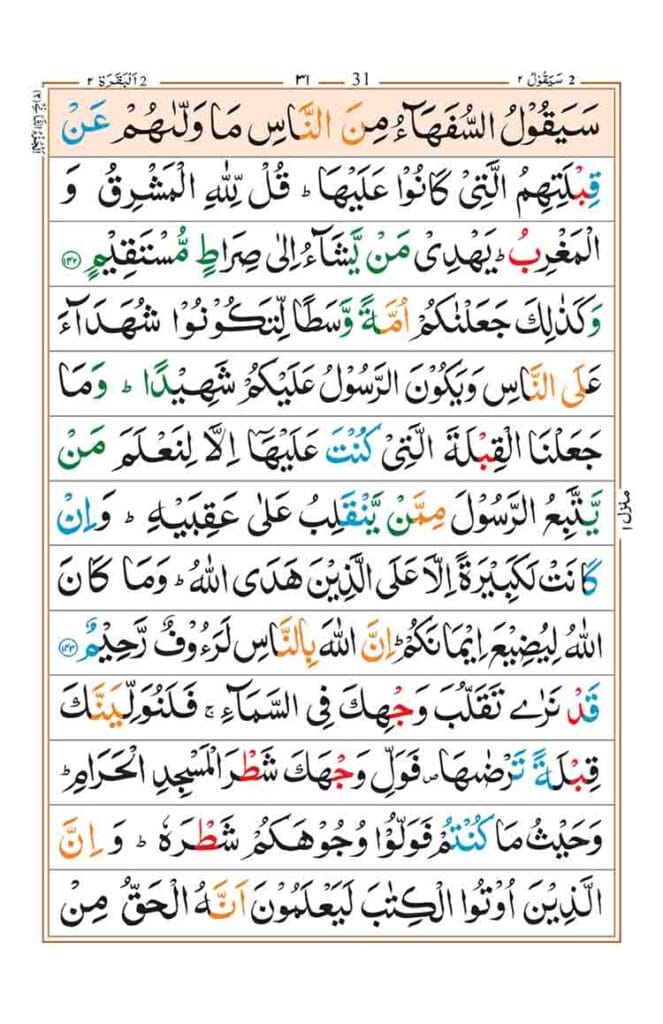 2 سَيَقُوْلُ ٢
31 ٣١
2 اَلْبَقَرَة ٢
سَيَقُوْلُ السُّفَهَآءُ مِنَ النَّاسِ مَا وَلّٰىهُمْ عَنْ
قِبْلَتِهِمُ الَّتِيْ كَانُوْا عَلَيْهَا ؕ قُلْ لِّلّٰهِ الْمَشْرِقُ وَ
الْمَغْرِبُ ؕ يَهْدِيْ مَنْ يَّشَآءُ اِلٰى صِرَاطٍ مُّسْتَقِيْمٍ ١٤٢
وَكَذٰلِكَ جَعَلْنٰكُمْ اُمَّةً وَّسَطًا لِّتَكُوْنُوْا شُهَدَآءَ
عَلَى النَّاسِ وَيَكُوْنَ الرَّسُوْلُ عَلَيْكُمْ شَهِيْدًا ؕ وَمَا
جَعَلْنَا الْقِبْلَةَ الَّتِيْ كُنْتَ عَلَيْهَاۤ اِلَّا لِنَعْلَمَ مَنْ
يَّتَّبِعُ الرَّسُوْلَ مِمَّنْ يَّنْقَلِبُ عَلٰى عَقِبَيْهِ ؕ وَاِنْ
كَانَتْ لَكَبِيْرَةً اِلَّا عَلَى الَّذِيْنَ هَدَى اللّٰهُ ؕ وَمَا كَانَ
اللّٰهُ لِيُضِيْعَ اِيْمَانَكُمْ ؕ اِنَّ اللّٰهَ بِالنَّاسِ لَرَءُوْفٌ رَّحِيْمٌ ١٤٣
قَدْ نَرٰى تَقَلُّبَ وَجْهِكَ فِي السَّمَآءِ ۚ فَلَنُوَلِّيَنَّكَ
قِبْلَةً تَرْضٰىهَا ۪ فَوَلِّ وَجْهَكَ شَطْرَ الْمَسْجِدِ الْحَرَامِ ؕ
وَحَيْثُ مَا كُنْتُمْ فَوَلُّوْا وُجُوْهَكُمْ شَطْرَهٗ ؕ وَ اِنَّ
الَّذِيْنَ اُوْتُوا الْكِتٰبَ لَيَعْلَمُوْنَ اَنَّهُ الْحَقُّ مِنْ
منزل ١